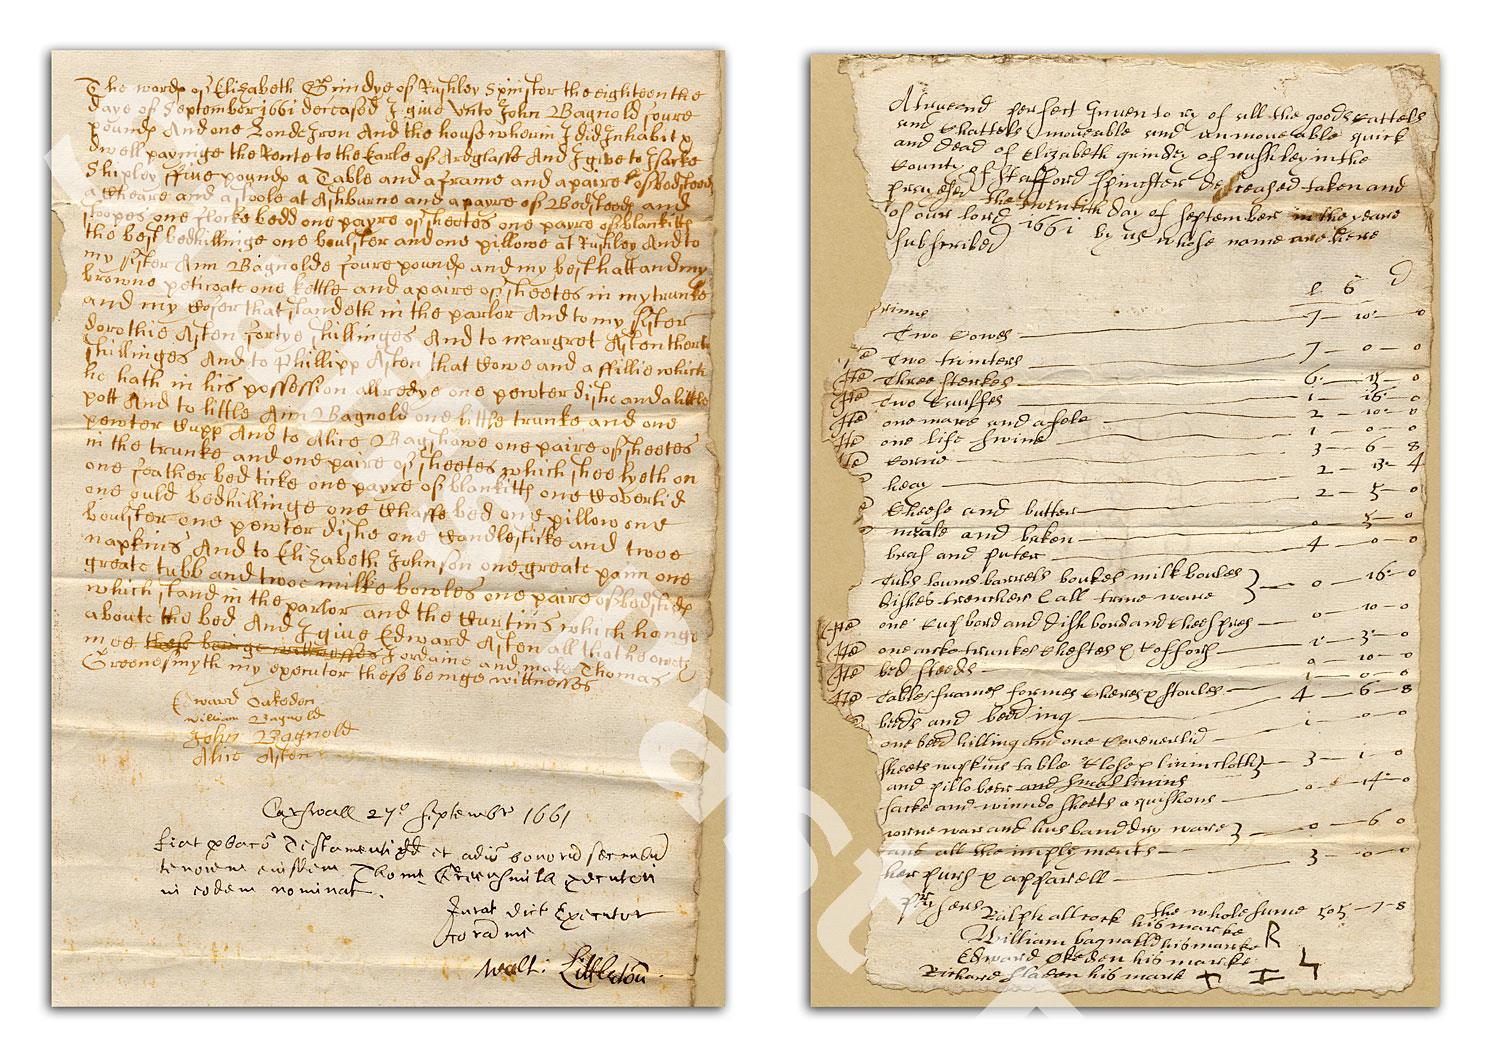 The words of Elizabeth Grindye of Rushley Spinster the eighteenthe
daye of September 1661 deceased I give unto John Bagnold foure
pounds And one Londe Iron And the house wherin I did Inhabit &
dwell payinge the Rente to the Earle of Ardglasse And I give to Isacke
Shipley ffive pounds a Table and a frame and a paire of Bedsteeds
a Cheare and a stoole at Ashburne and a payre of Bedsteeds and
stoopes one flocke bedd one payre of sheetes one payre of blankitts
the best bedhillinge one boulster and one pillowe at Rushley And to
my sister Ann Bagnolde foure pounds and my best hatt and my
browne peticoate one kettle and a paire of sheetes in my trunke
and my Cofer that standeth in the parlor And to my sister
dorothie Asten fortye shillinges And to margret Asten thertie
shillinges And to Phillipp Asten that Cowe and a ffillie which
he hath in his possession allredye one pewter dishe and a little
pott And to little Ann Bagnold one little trunke and one
pewter Cupp And to Alice Bagshawe one paire of sheetes
in the trunke and one paire of sheetes which shee lyeth on
one feather bed ticke one payre of blankitts one Coverlid
one ould bedhillinge one Chaffe bed one pillow one
boulster one pewter dishe one Candlesticke and twoe
napkins And to Elizabeth Johnson one greate pann one
greate tubb and twoe milke bowles one paire of bedsteeds
which stand in the parlor and the Curtins which hange
aboute the bed And I give Edward Asten all that he oweth
mee these beinge wittnesses Iordaine and make Thomas
Greenesmyth my executor these beinge wittnesses
Edward Oakedon
William Bagnold
John Bagnold
Alice Asten
Carswall 27o Septembr 1661
fiat Testamenti et
tenorem eiusdem Thome Greensmith executori
in eodem nominat
Jurat dict Executor
coram me
Walt: Littleton
A true and perfect Inventory of all the goods Cattels
and Chattels moveable and unmoveable quick
and dead of Elizabeth grindey of rushley in the
County of Stafford spinster deceased taken and
the twentith day of September in the yeare
of our lord 1661 by us whose name are here
subscribed
l s d
Two Cowes 7 — 10 — 0
Two twinters 7 — 0 — 0
Ite Three sterkes 6 — 13 — 0
Ite Two Caulfes 1 — 16 — 0
Ite one mare and a fole 2 — 10 — 0
Ite one life swine 1 — 0 — 0
Corne 3 — 6 — 8
heay 2 — 13 — 4
Cheese and butter 2 — 5 — 0
meale and baken 0 — 5 — 0
bras and puter 4 — 0 — 0
Tubs barrels milk boules
dishes trenchers & all ware 0 — 16 — 0
Ite one Cup bord and dish bord and Chees pres 0 — 10 — 0
Ite one arke trunkes Chestes & Coffors 1 — 3 — 0
Ite bed steeds 0 — 10 — 0
Ite Tables frames formes Cheres & stoules 1 — 0 — 0
beds and beeding 4 — 6 — 8
one bed hilling and one Coverlid 1 — 0 — 0
sheets napkins table Close & linin cloth
and pillo beer 3 — 1 — 0
sacke and winndo sheets & quishons 0 — 14 — 0
and husbanddry ware
and all the implements 0 — 6 — 0
her purs & apparell 3 — 0 — 0
the whole sume 55 — 7 — 8
Ralph allcock his marke R
William bagnalld his marke
Edward Okeden his marke
Richard sladen his mark